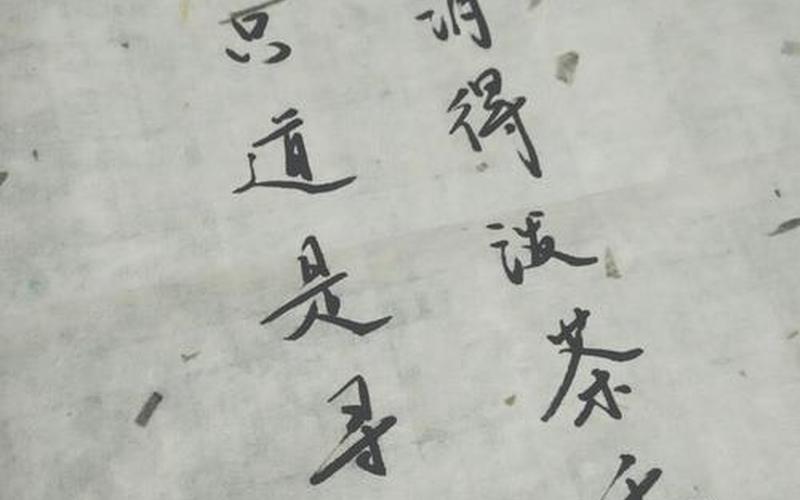 消得泼茶
只道是寻